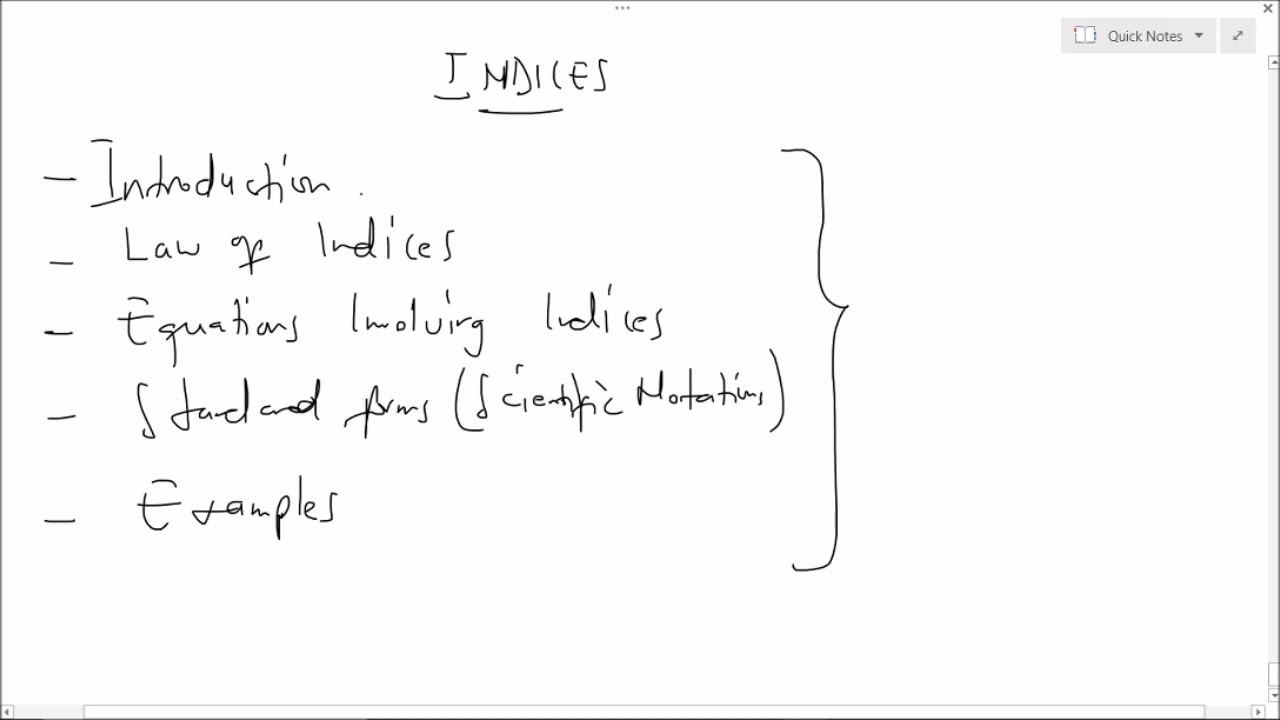 Quick Notes
INDICES
- Introduction.
- Law of Indices
- Equations Involving Indices
- Standard forms (Scientific Notations)
- Examples